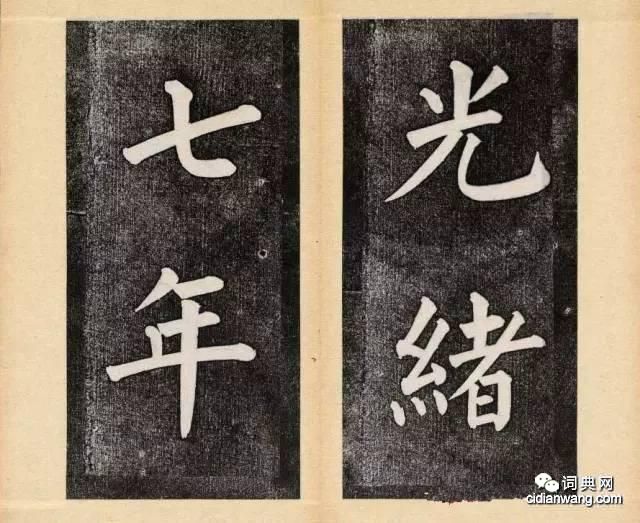 光緒
七年
词典网
cidianwang.com